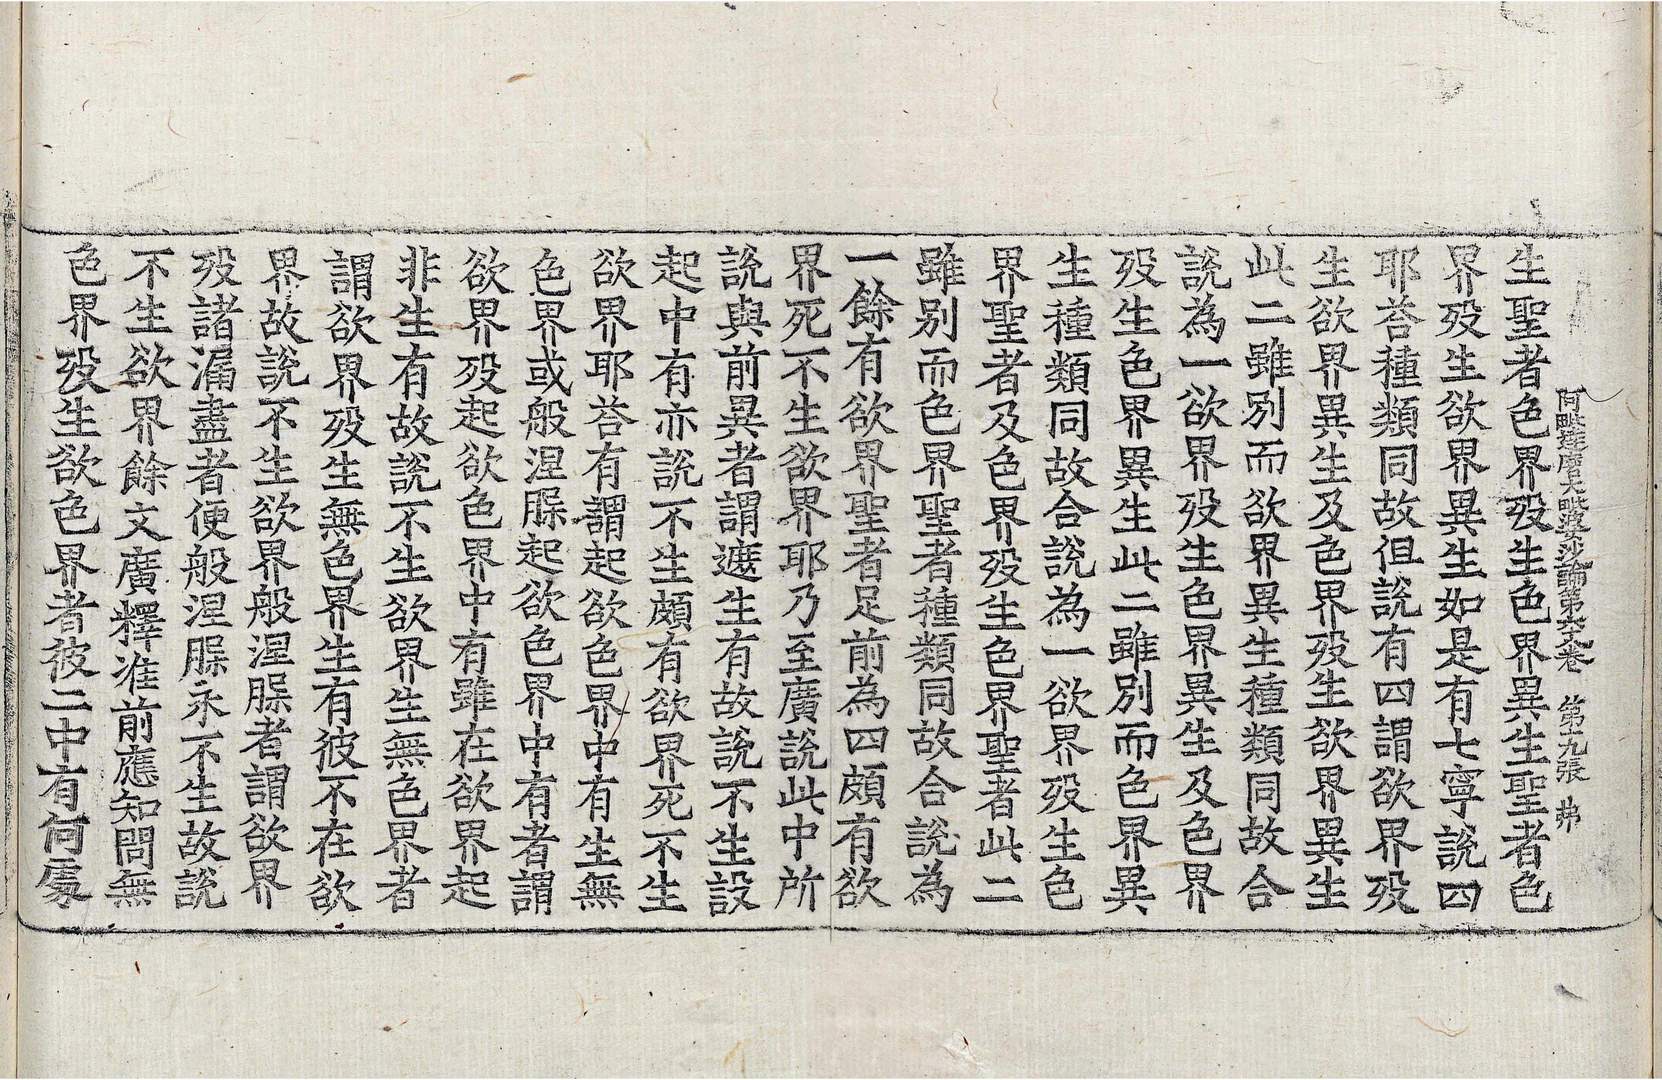 阿毗達磨大毗婆沙論第六十卷　第十九張　弗
生聖者色界歿生色界異生聖者色
界歿生欲界異生如是有七寧說四
耶荅種類同故但說有四謂欲界歿
生欲界異生及色界歿生欲界異生
此二雖別而欲界異生種類同故合
說為一欲界歿生色界異生及色界
歿生色界異生此二雖別而色界異
生種類同故合說為一欲界歿生色
界聖者及色界歿生色界聖者此二
雖別而色界聖者種類同故合說為
一餘有欲界聖者足前為四頗有欲
界死不生欲界耶乃至廣說此中所
說與前異者謂遮生有故說不生設
起中有亦說不生頗有欲界死不生
欲界耶荅有謂起欲色界中有生無
色界或般涅槃起欲色界中有者謂
欲界歿起欲色界中有雖在欲界起
非生有故說不生欲界生無色界者
謂欲界歿生無色界生有彼不在欲
界故說不生欲界般涅槃者謂欲界
歿諸漏盡者便般涅槃永不生故說
不生欲界餘文廣釋准前應知問無
色界歿生欲色界者彼二中有何處